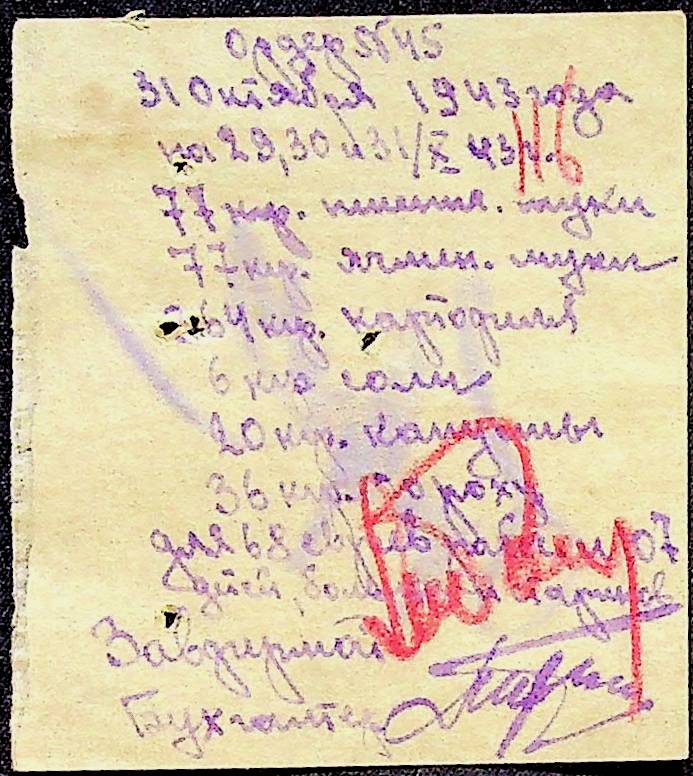 Ордер №45
31 Октября 1943 года
на 29, 30 и 31/X 43 г.
77 кгр. пшенич. муки
77 кгр. ячмен. муки
264 кгр. картофиля
6 кгр соли
20 кгр. капусты
36 кгр. гороху
для 68
дней,
Завфирмой
Бухгалтер